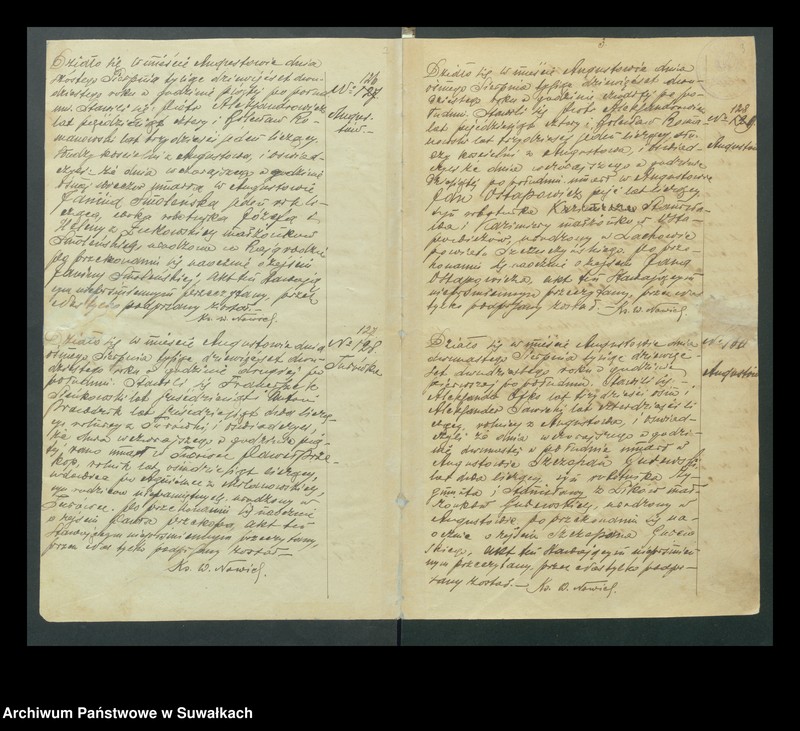 Działo się w mieście Augustowie dnia
szóstego Sierpnia tysiąc dziewięćset dwu-
dziestego roku o godzinie piątej po połud-
niu. Stawili się, Piotr Aleksandrowicz
lat pięćdziesiąt cztery i Bolesław Ro-
manowski lat trzydzieści jeden liczący,
słudzy kościelni z Augustowa, i oświad-
czyli że dnia wczorajszego o godzinie
umarła w Augustowie
Janina Smoleńska jeden rok li-
cząca, córka robotnika Józefa i
Heleny z Żukowskich małżonków
Smoleńskich, urodzona w Rajgrodzie
po przekonaniu się naocznie o zejściu
Janiny Smoleńskiej, Akt ten stawają-
cym niepiśmiennym przeczytany, przez
nas tylko podpisany został.
Ks. W. Nowicki.
126
№ 127
Augus-
tów.
Działo się w mieście Augustowie dnia
ósmego Sierpnia tysiąc dziewięćset dwu-
dziestego roku o godzinie drugiej po
południu. Stawili się Franciszek
lat sześćdziesiąt i Antoni
lat pięćdziesiąt dwa liczą-
cy, rolnicy z i oświadczyli,
że dnia wczorajszego o godzinie pią-
tej rano umarł w Paweł Prze-
kop, rolnik lat osiemdziesiąt liczący,
wdowiec po Agnieszce z
rodziców niepamiętnych, urodzony w
po przekonaniu się naocznie
o zejściu Pawła Przekopa, akt ten
stawającym niepiśmiennym przeczytany,
przez nas tylko podpisany został.
Ks. W. Nowicki.
127
№ 128.
3
Działo się w mieście Augustowie dnia
ósmego Sierpnia tysiąc dziewięćset dwu-
dziestego roku o godzinie po po-
łudniu. Stawili się Piotr Aleksandrowicz
lat pięćdziesiąt cztery i Bolesław Roma-
nowski lat trzydzieści jeden liczący słu-
dzy kościelni z Augustowa, i oświad-
czyli że dnia wczorajszego o godzinie
po południu umarł w Augustowie
Jan Ostapowicz pięć lat liczący
syn robotnika Kazimierza Stanisła-
wa i Kazimiery małżonków Osta-
powiczów, urodzony w
powiatu Szczuczyńskiego. Po prze-
konaniu się naocznie o zejściu Jana
Ostapowicza, akt ten stawającym
niepiśmiennym przeczytany, przez nas
tylko podpisany został. Ks. W. Nowicki.
128
Augustów
Działo się w mieście Augustowie dnia
dwunastego Sierpnia tysiąc dziewięć-
set dwudziestego roku o godzinie
pierwszej po południu. Stawili się,
Aleksander lat trzydzieści ośm i
Aleksander Sawicki lat czterdzieści li-
czący, rolnicy z Augustowa, i oświad-
czyli że dnia wczorajszego o godzi-
nie dwunastej w południe umarł w
Augustowie Szczepan
lat dwa liczący, syn robotnika Zy-
gmunta i Stanisławy z mał-
żonków urodzony w
Augustowie, po przekonaniu się na-
ocznie o zejściu Szczepana
Akt ten stawającym niepiśmien-
nym przeczytany, przez nas tylko podpi-
sany został. Ks. W. Nowicki.
Augustów
Archiwum Państwowe w Suwałkach